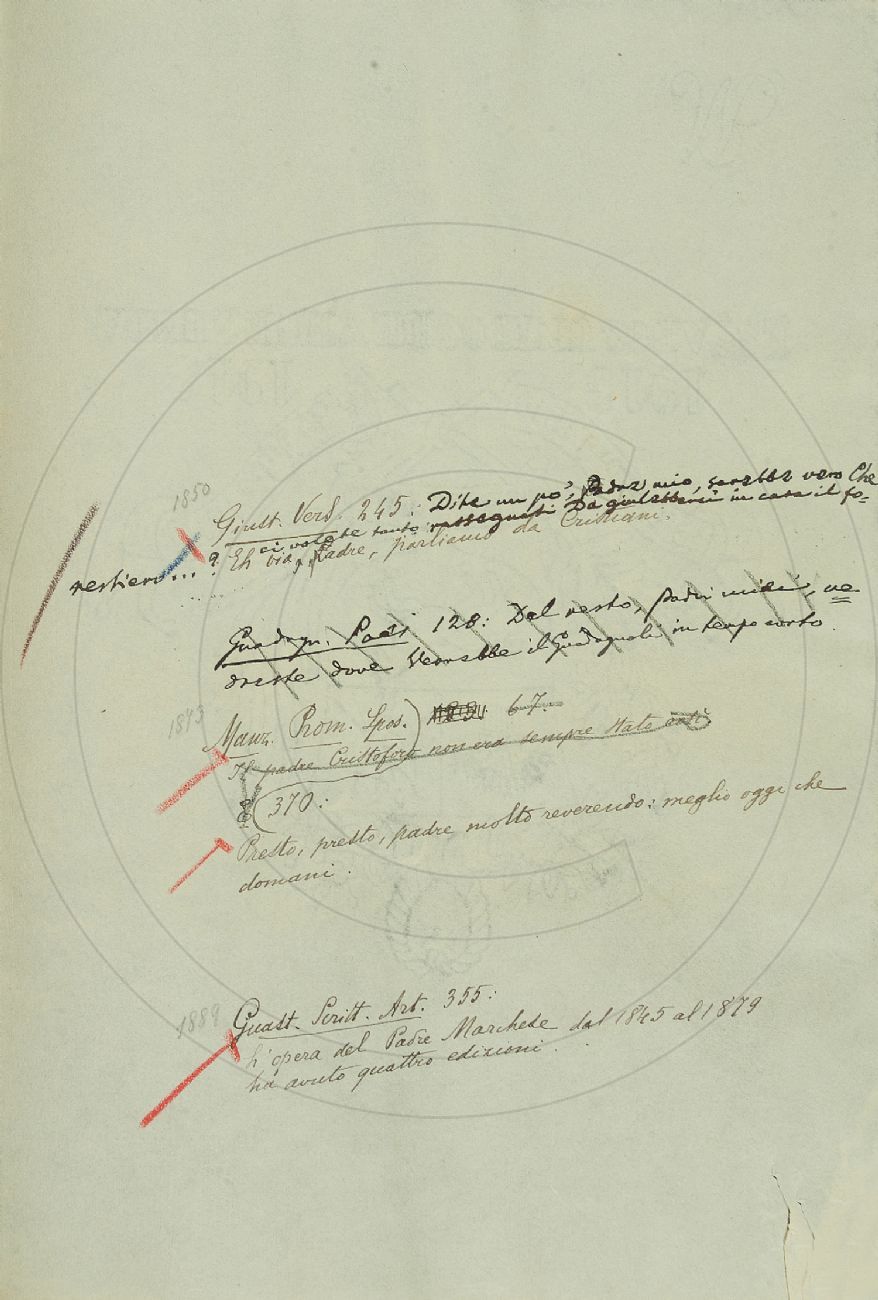 1850
Giust. Vers. 245: Dite un po', Padre mio, sarebbe vero Che
ci volete tanto rassegnati Da giulebbarci in casa il fo=
restiero...? Eh via, Padre, parliamo da Cristiani.
Guadagn. Poes. 128: Del resto, padri miei, ve=
dreste dove Verrebbe il Guadagnoli in tempo corto.
1873
Manz. Prom. Spos. 67.
Il padre Cristoforo non era sempre stato così
370:
Presto, presto, padre molto reverendo: meglio oggi che
domani.
1889
Guast. Scritt. Art. 355:
L'opera del Padre Marchese dal 1845 al 1879
ha avuto quattro edizioni.